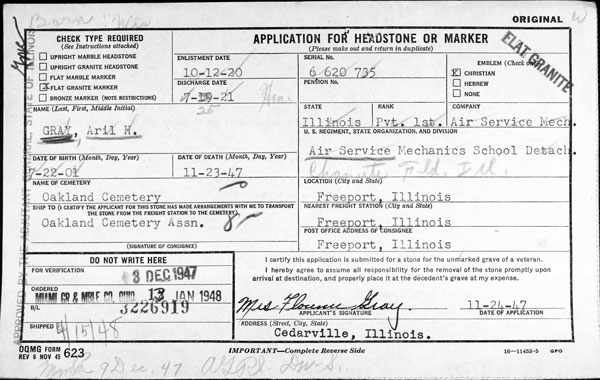 Born: Wis
ORIGINAL
CHECK TYPE REQUIRED
(See Instructions attached)
UPRIGHT MARBLE HEADSTONE
UPRIGHT GRANITE HEADSTONE
FLAT MARBLE MARKER
X FLAT GRANITE MARKER
BRONZE MARKER (NOTE RESTRICTIONS)
APPLICATION FOR HEADSTONE OR MARKER
(Please make out and return in duplicate)
ENLISTMENT DATE
10-12-20
SERIAL No.
6 620 735
EMBLEM (Check one)
X CHRISTIAN
HEBREW
NONE
FLAT GRANITE
DISCHARGE DATE
25
PENSION No.
NAME (Last, First, Middle Initial)
GRAY, Aril H.
STATE
Illinois
RANK
Pvt. 1st.
COMPANY
Air Service Mech.
U. S. REGIMENT, STATE ORGANIZATION, AND DIVISION
Air Service Mechanics School Detach.
Chanute Fld. Ill.
DATE OF BIRTH (Month, Day, Year)
7-22-01
DATE OF DEATH (Month, Day, Year)
11-23-47
NAME OF CEMETERY
Oakland Cemetery
LOCATION (City and State)
Freeport, Illinois
SHIP TO (I CERTIFY THE APPLICANT FOR THIS STONE HAS MADE ARRANGEMENTS WITH ME TO TRANSPORT THE STONE FROM THE FREIGHT STATION TO THE CEMETERY)
Oakland Cemetery Assn.
NEAREST FREIGHT STATION (City and State)
Freeport, Illinois
POST OFFICE ADDRESS OF CONSIGNEE
Freeport, Illinois
(SIGNATURE OF CONSIGNEE)
DO NOT WRITE HERE
FOR VERIFICATION
3 DEC 1947
ORDERED
MIAMI GR & MBLE CO, OHIO 13 JAN 1948
B/L
3226919
SHIPPED
4/15/48
I certify this application is submitted for a stone for the unmarked grave of a veteran.
I hereby agree to assume all responsibility for the removal of the stone promptly upon arrival at destination, and properly place it at the decedent's grave at my expense.
Mrs Florence Gray
APPLICANT'S SIGNATURE
11-24-47
DATE OF APPLICATION
ADDRESS (Street, City, State)
Cedarville, Illinois.
OQMG FORM
REV 6 NOV 45 623
IMPORTANT—Complete Reverse Side
16—11453-5 GPO
9 Dec. 47